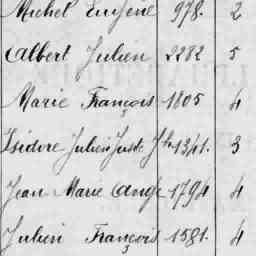 Michel Eugène 978. 2
Albert Julien 2282 5
Marie François 1805 4
Isidore Julien Juste Jh 1341. 3
Jean Marie Ange 1794 4
Julien François 1581. 4